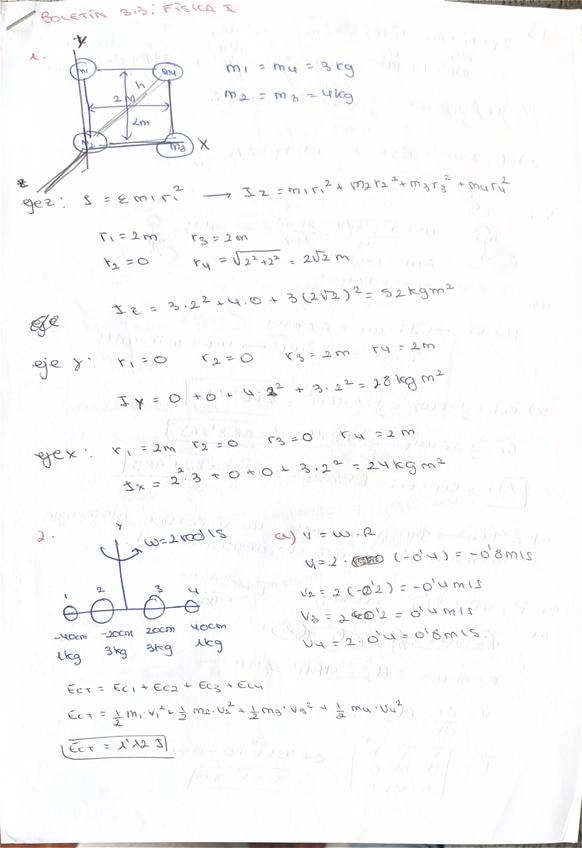 BOLETÍN 3.3: FÍSICA I
1.
y
m1
m4
h
2m
2m
m2
m3
X
z
m1 = m4 = 3kg
m2 = m3 = 4kg
eje z: I = Σm1r1² → Iz = m1r1² + m2r2² + m3r3² + m4r4²
r1 = 2m r3 = 2m
r2 = 0 r4 = √2²+2² = 2√2 m
Iz = 3·2² + 4·0 + 3(2√2)² = 52kgm²
eje y: r1 = 0 r2 = 0 r3 = 2m r4 = 2m
Iy = 0 + 0 + 4·2² + 3·2² = 28kg m²
eje x: r1 = 2m r2 = 0 r3 = 0 r4 = 2m
Ix = 2²·3 + 0 + 0 + 3·2² = 24kgm²
2.
y
ω = 2 rad/s
1 2 3 4
-40cm -20cm 20cm 40cm
1kg 3kg 3kg 1kg
a) v = ω·R
v1 = 2· (-0'4) = -0'8m/s
v2 = 2(-0'2) = -0'4m/s
v3 = 2·0'2 = 0'4 m/s
v4 = 2·0'4 = 0'8m/s.
EcT = Ec1 + Ec2 + Ec3 + Ec4
EcT = 1/2 m1·v1² + 1/2 m2·v2² + 1/2 m3·v3² + 1/2 m4·v4²
EcT = 1'12 J